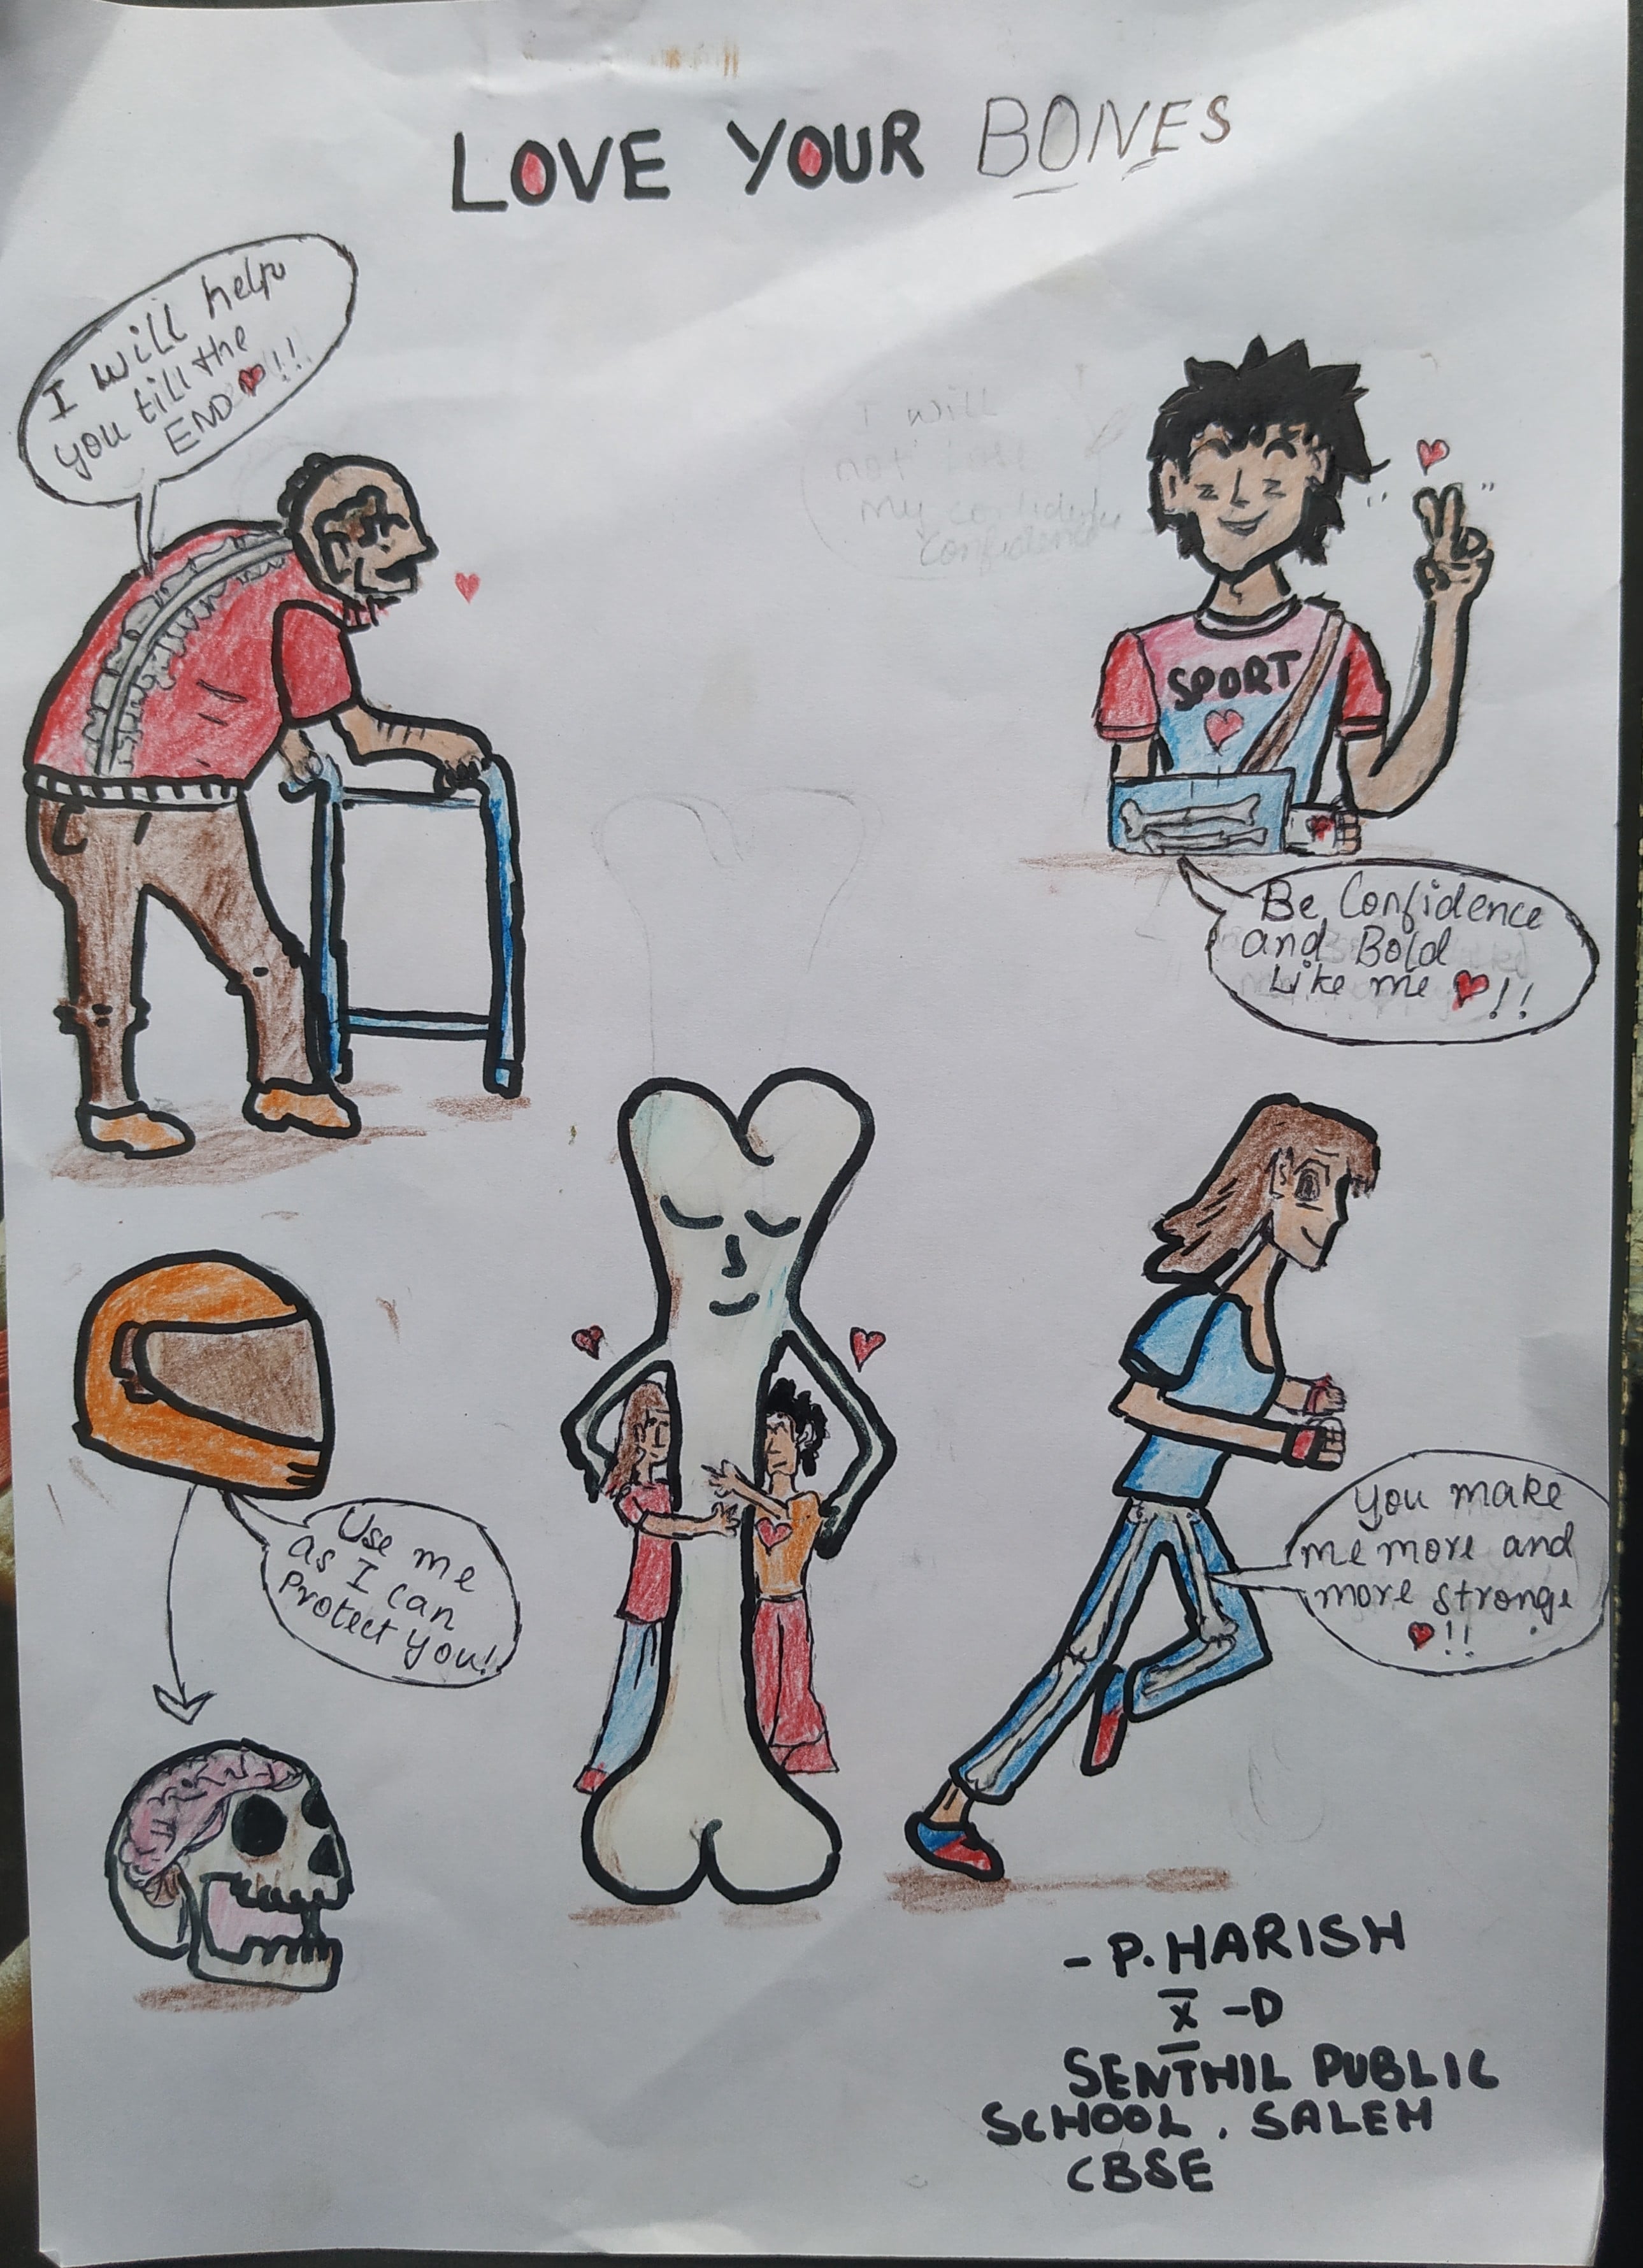 LOVE YOUR BONES
I will help
you till the
END !!
I will
not lose
my confidence
confidence
SPORT
Be Confidence
and Bold
Like me !!
Use me
as I can
Protect you!
You make
me more and
more stronge
!!
- P. HARISH
X - D
SENTHIL PUBLIC
SCHOOL, SALEM
CBSE